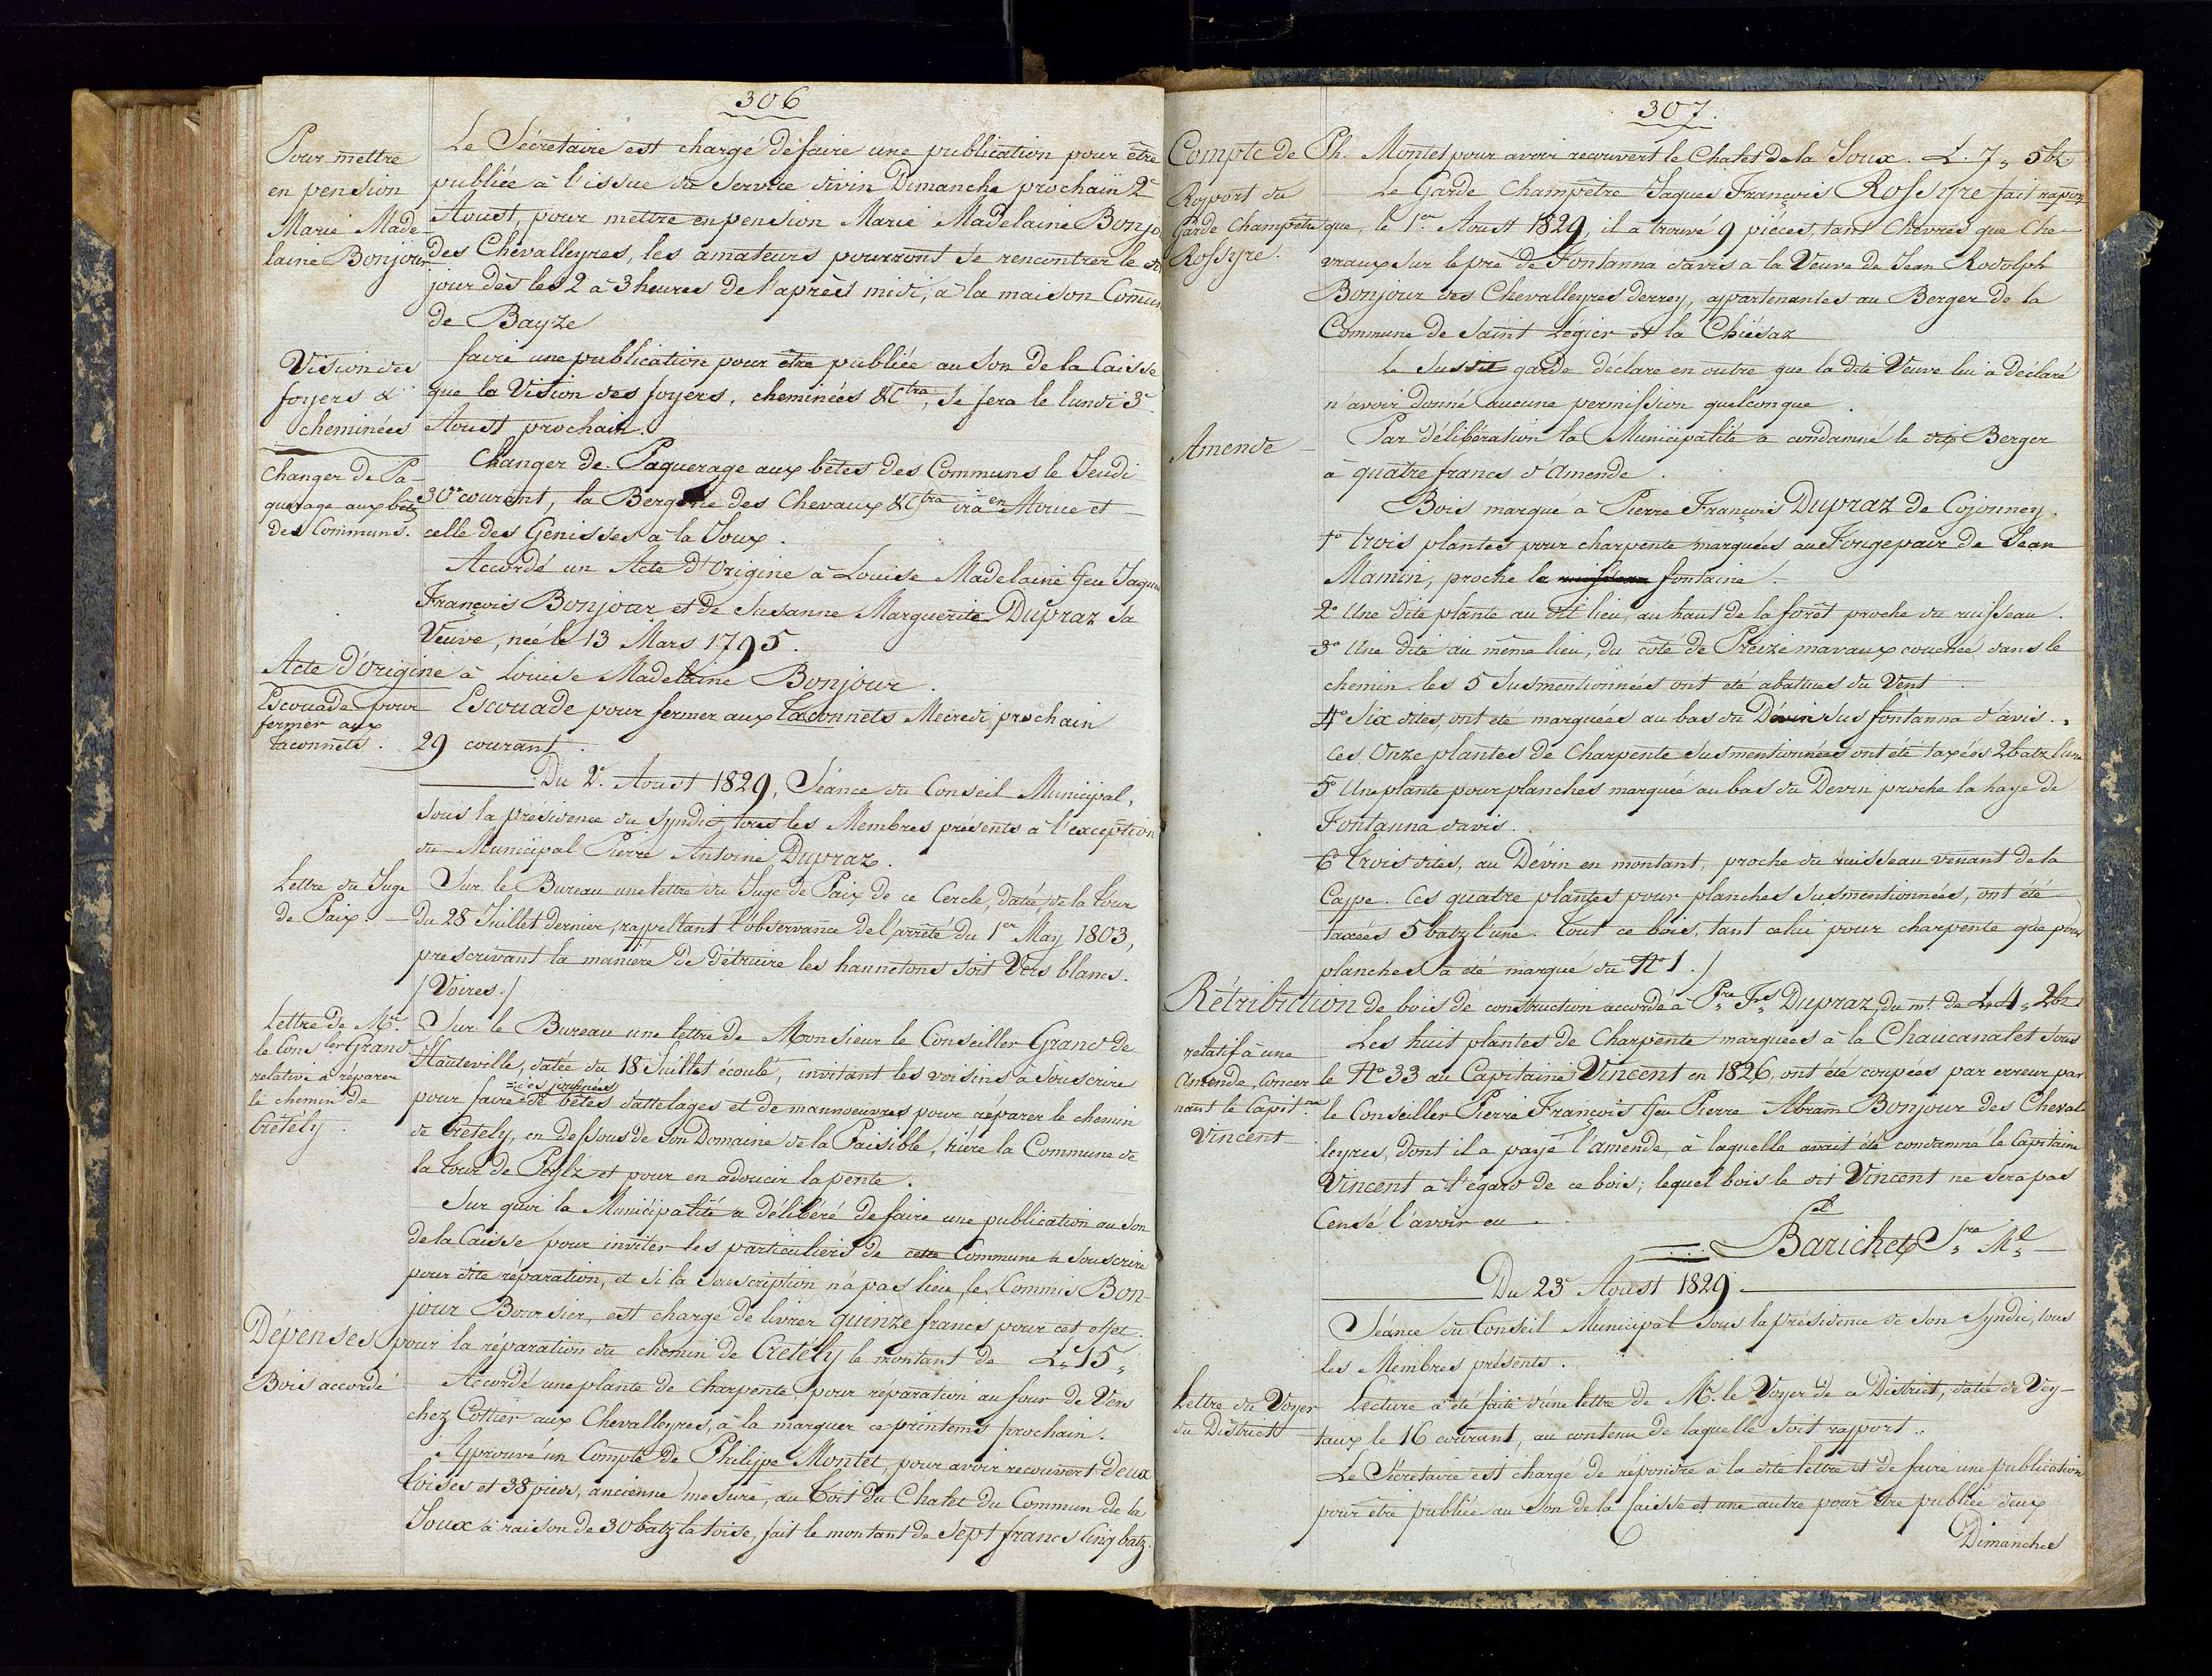 306
Pour mettre
en pension
Marie Made
laine Bonjour
Le Sécretaire est chargé de faire une publication pour être
publiée à l'issue du Service divin Dimanche prochain 2e
Aoust, pour mettre en pension Marie Madelaine Bonjo
des Chevalleyres, les amateurs pourront se rencontrer le
jour dès les 2 à 3 heures de l'après midi, à la maison Comun
de Bayze
Vision des
foyers &
cheminées
faire une publication pour être publiée au Son de la Caisse
que la Vision des foyers, cheminées &Ctra, se fera le lundi 3e
Aoust prochain.
Changer de Pa-
querage aux bêtes
des Communs.
Changer de Paquerage aux bêtes des Communs le Jeudi
30e courant, la Bergerie des Chevaux &Ctra ira en Morue et
celle des Genisses à la Joux.
Accordé un Acte d'Origine à Louise Madelaine feu Jaques
François Bonjour et de Susanne Marguerite Dupraz sa
Veuve, née le 13 Mars 1795.
Acte d'Origine à Louise Madelaine Bonjour.
Escouade pour
fermer aux
taconnets.
Escouade pour fermer aux taconnets Mecredi prochain
29 courant.
Du 2e Aoust 1829, Séance du Conseil Municipal,
sous la présidence du Syndic, tous les Membres présents à l'exception
du Municipal Pierre Antoine Dupraz.
Lettre du Juge
de Paix.
Sur le Bureau une lettre du Juge de Paix de ce Cercle, daté, de la tour
du 28 Juillet dernier, rappellant l'observance de l'arrêté du 1er May 1803,
prescrivant la manière de détruire les hannetons soit Vers blancs.
/Voires./
Lettre de Mr.
le Consler Grand
relative à réparer
le chemin de
Crétély.
Sur le Bureau une lettre de Monsieur le Conseiller Grand de
Hauteville, datée du 18 Juillet écoulé, invitant les voisins à souscrire
=des journées
pour faire de bêtes d'attelages et de mannoeuvres pour réparer le chemin
de Crétely, en dessous de son Domaine de la Paisible, rière la Commune de
la tour de Peylz et pour en adoucir la pente.
Sur quoi la Municipalité a délibéré de faire une publication au Son
de la Caisse pour inviter les particuliers de cette Commune à Souscrire
pour dite réparation, et si la souscription n'a pas lieu, le Commis Bon-
jour Boursier, est chargé de livrer quinze francs pour cet objet.
Dépenses pour la réparation du chemin de Crétély le montant de L„ 15„
Bois accordé
Accordé une plante de charpente pour réparation au four de Vers
chez Cottier aux Chevalleyres, à la marquer ce printems prochain.
Aprouvé un Compte de Philippe Montet, pour avoir recouvert deux
toises et 38 pieds, ancienne mesure, au toit du Chalet du Commun de la
Joux à raison de 30 batz la toise, fait le montant de Sept francs Cinq batz.
307.
Compte de Ph. Montet pour avoir recouvert le Chalet de la Joux. L. 7„ 5bz
Raport du
Garde Champêtre
Rossyre.
Le Garde Champêtre Jaques François Rossyre fait raport
que, le 1er. Aoust 1829, il a trouvé 9 pièces, tant Chèvres que Che-
vraux sur le pré de Fontanna davis à la Veuve de Jean Rodolph
Bonjour des Chevalleyres derrey, appartenantes au Berger de la
Commune de Saint Légier et la Chiésaz
Le Susdit garde déclare en outre que la dite Veuve lui a déclaré
n'avoir donné aucune permission quelconque.
Amende
Par délibération la Municipalité a condamné le dit Berger
à quatre francs d'Amende.
Bois marqué à Pierre François Dupraz de Cojonney.
1° trois plantes pour charpente marquées au Fougepair de Jean
Mamin, proche la fontaine.
2° Une dite plante au dit lieu, au haut de la forêt proche du ruisseau.
3° Une dite au même lieu, du côté de Preize maraux couchée dans le
chemin. les 5 Susmentionnées ont été abattues du Vent.
4° Six dites, ont été marquées au bas du Dévin sus fontanna d'avis.
Ces Onze plantes de Charpente susmentionnées ont été taxées 2 batz l'une
5° Une plante pour planches marquée au bas du Devin proche la haye de
Fontanna davis.
6° trois dites, au Dévin en montant, proche du ruisseau venant de la
Cappe. Ces quatre plantes pour planches susmentionnées, ont été
taxées 5 batz l'une. tout ce bois, tant celui pour charpente que pour
planches a été marqué du N° 1./
Rétribution de bois de construction accordé à Pre Fs Dupraz, du mt. de L„ 4„ 2bz
relatif à une
Amende, Concer
nant le Capitne
Vincent
Les huit plantes de Charpente marquées à la Chaucanalet sous
le N° 33 au Capitaine Vincent en 1826, ont été coupées par erreur par
le Conseiller Pierre François feu Pierre Abram Bonjour des Cheval
leyres, dont il a payé l'amende, à laquelle avait été condamné le Capitaine
Vincent à l'égard de ce bois; lequel bois le dit Vincent ne sera pas
Censé l'avoir eu.
Barichet Sre Ml
Du 23e Aoust 1829
Séance du Conseil Municipal sous la présidence de son Syndic, tous
les Membres présents.
Lettre du Voyer
du District
Lecture a été faite d'une lettre de Mr. le Voyer de ce District, datée de Vey-
taux le 16 courant, au contenu de laquelle soit rapport.
Le Sécretaire est chargé de répondre à la dite lettre et de faire une publication
pour être publiée au Son de la Caisse et une autre pour être publiée deux
Dimanches